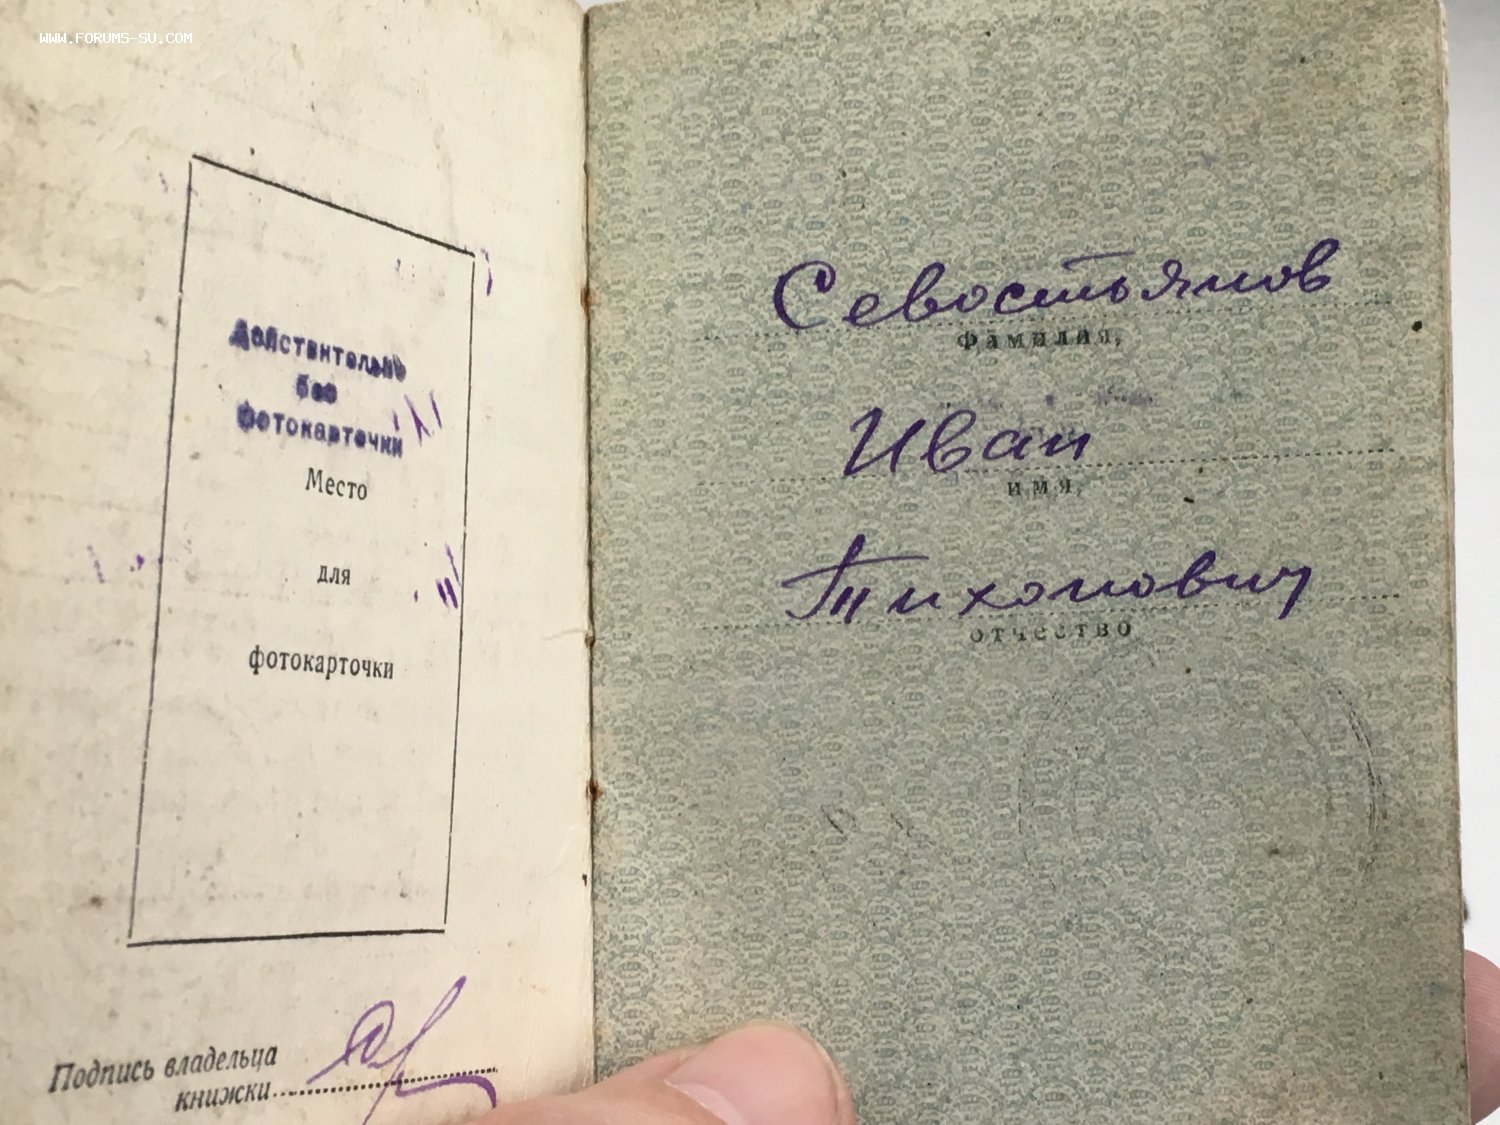 WWW.FORUMS-SU.COM
Действительно
без
фотокарточки
Место
для
фотокарточки
Подпись владельца
книжки
Севостьянов
фамилия,
Иван
имя,
Тихонович
отчество